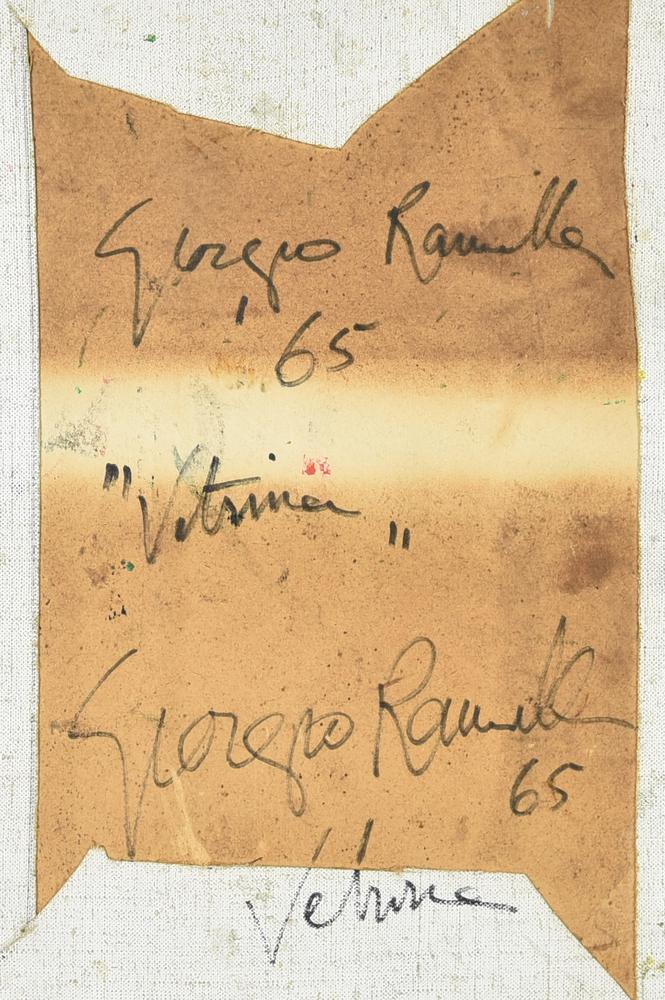 Giorgio Ramella
'65
"Vetrina"
Giorgio Ramella
65
Vetrina